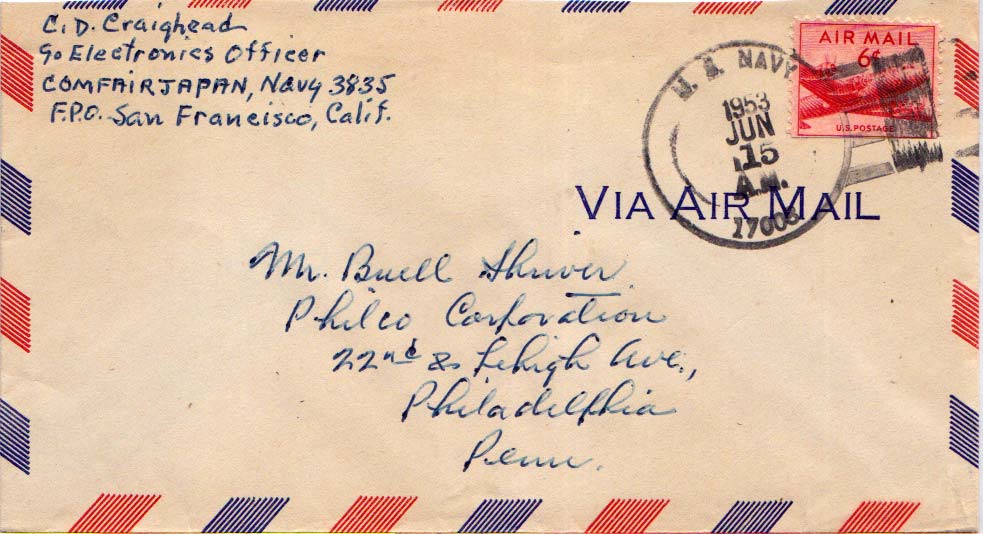 C.D. Craighead
c/o Electronics Officer
COMFAIRJAPAN, Navy 3835
F.P.O. San Francisco, Calif.
AIR MAIL
6¢
U.S. POSTAGE
U. S. NAVY
1953
JUN
15
A.M.
VIA AIR MAIL
Mr. Buell Shriver
Philco Corporation
22nd & Lehigh Ave.,
Philadelphia
Penn.